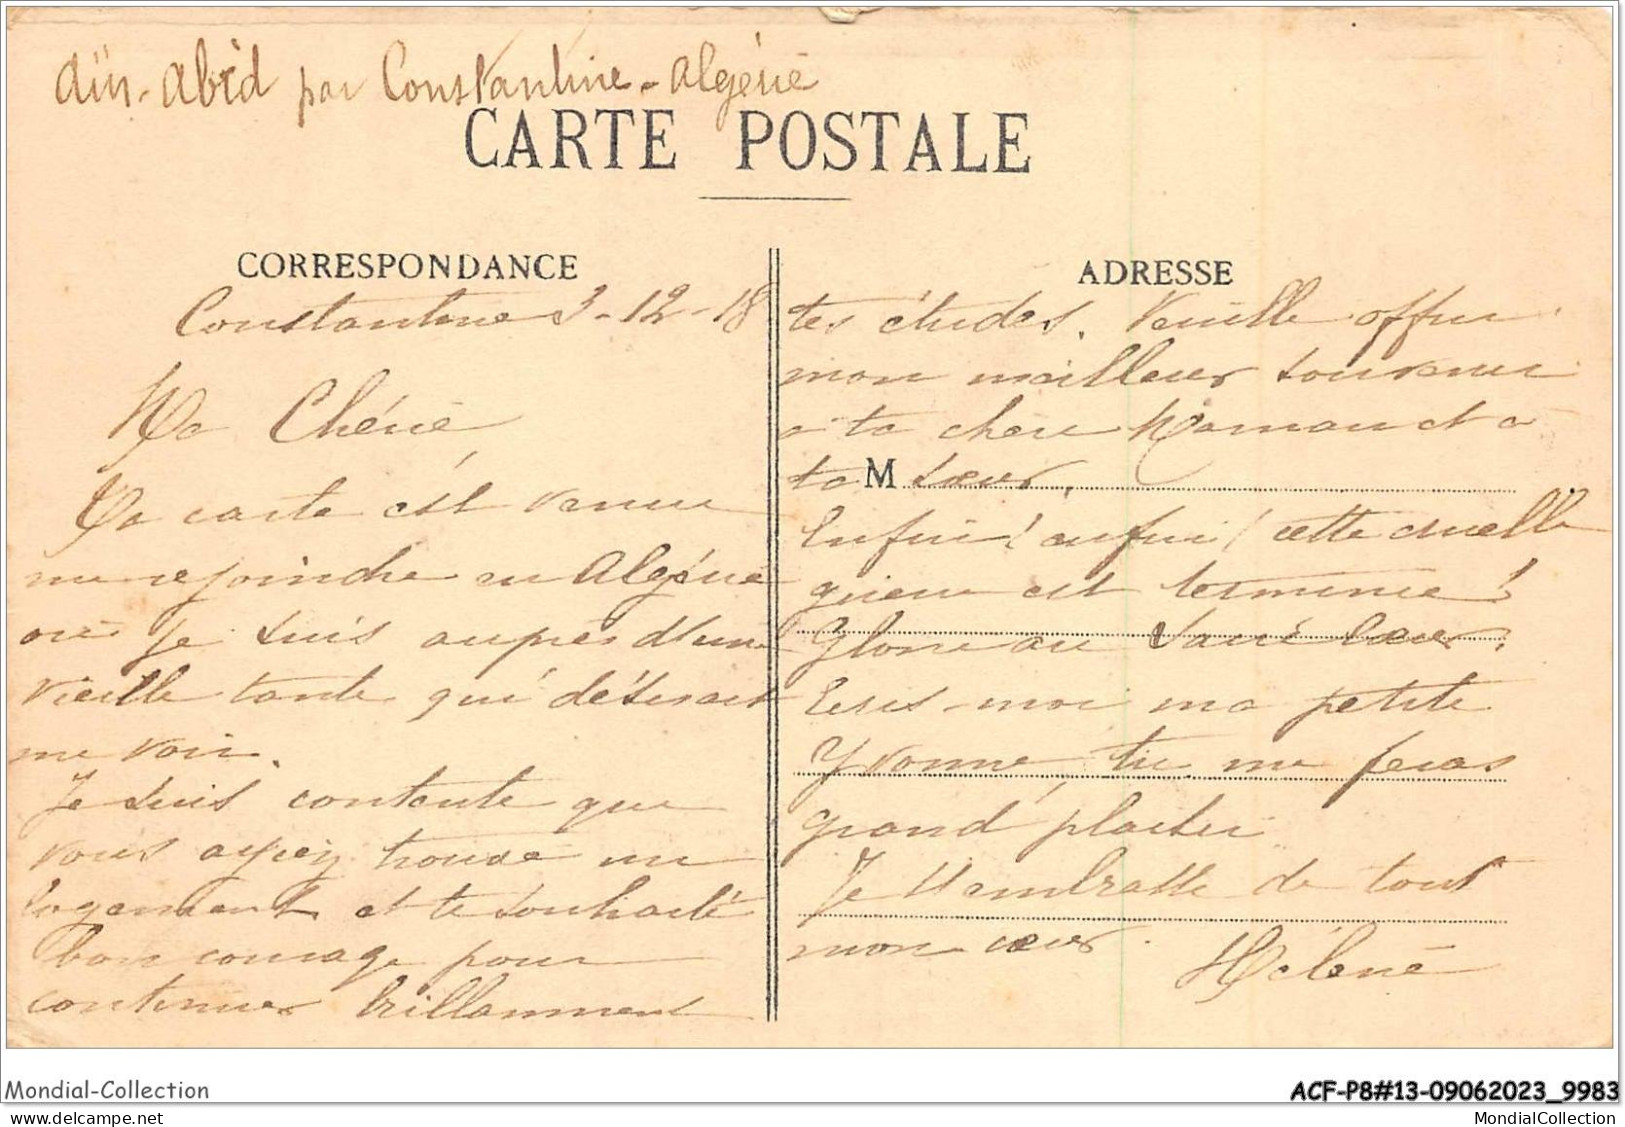 Aïn-Abid par Constantine-Algérie
CARTE POSTALE
CORRESPONDANCE
Constantine 3-12-18
Ma Chérie
Ta carte est venue
me rejoindre en Algérie
où je suis auprès d'une
vieille tante qui désirait
me voir.
Je suis contente que
vous ayiez trouvé un
logement et te souhaite
bon courage pour
continuer brillamment
ADRESSE
tes études. Veuille offrir
mon meilleur souvenir
à ta chère Maman et à
ta M sœur.
Enfin! enfin! cette cruelle
guerre est terminée!
Gloire au Sacré Cœur!
Ecris-moi ma petite
Yvonne, tu me feras
grand plaisir
Je t'embrasse de tout
mon cœur.
Hélène
Mondial-Collection
ACF-P8#13-09062023_9983
MondialCollection